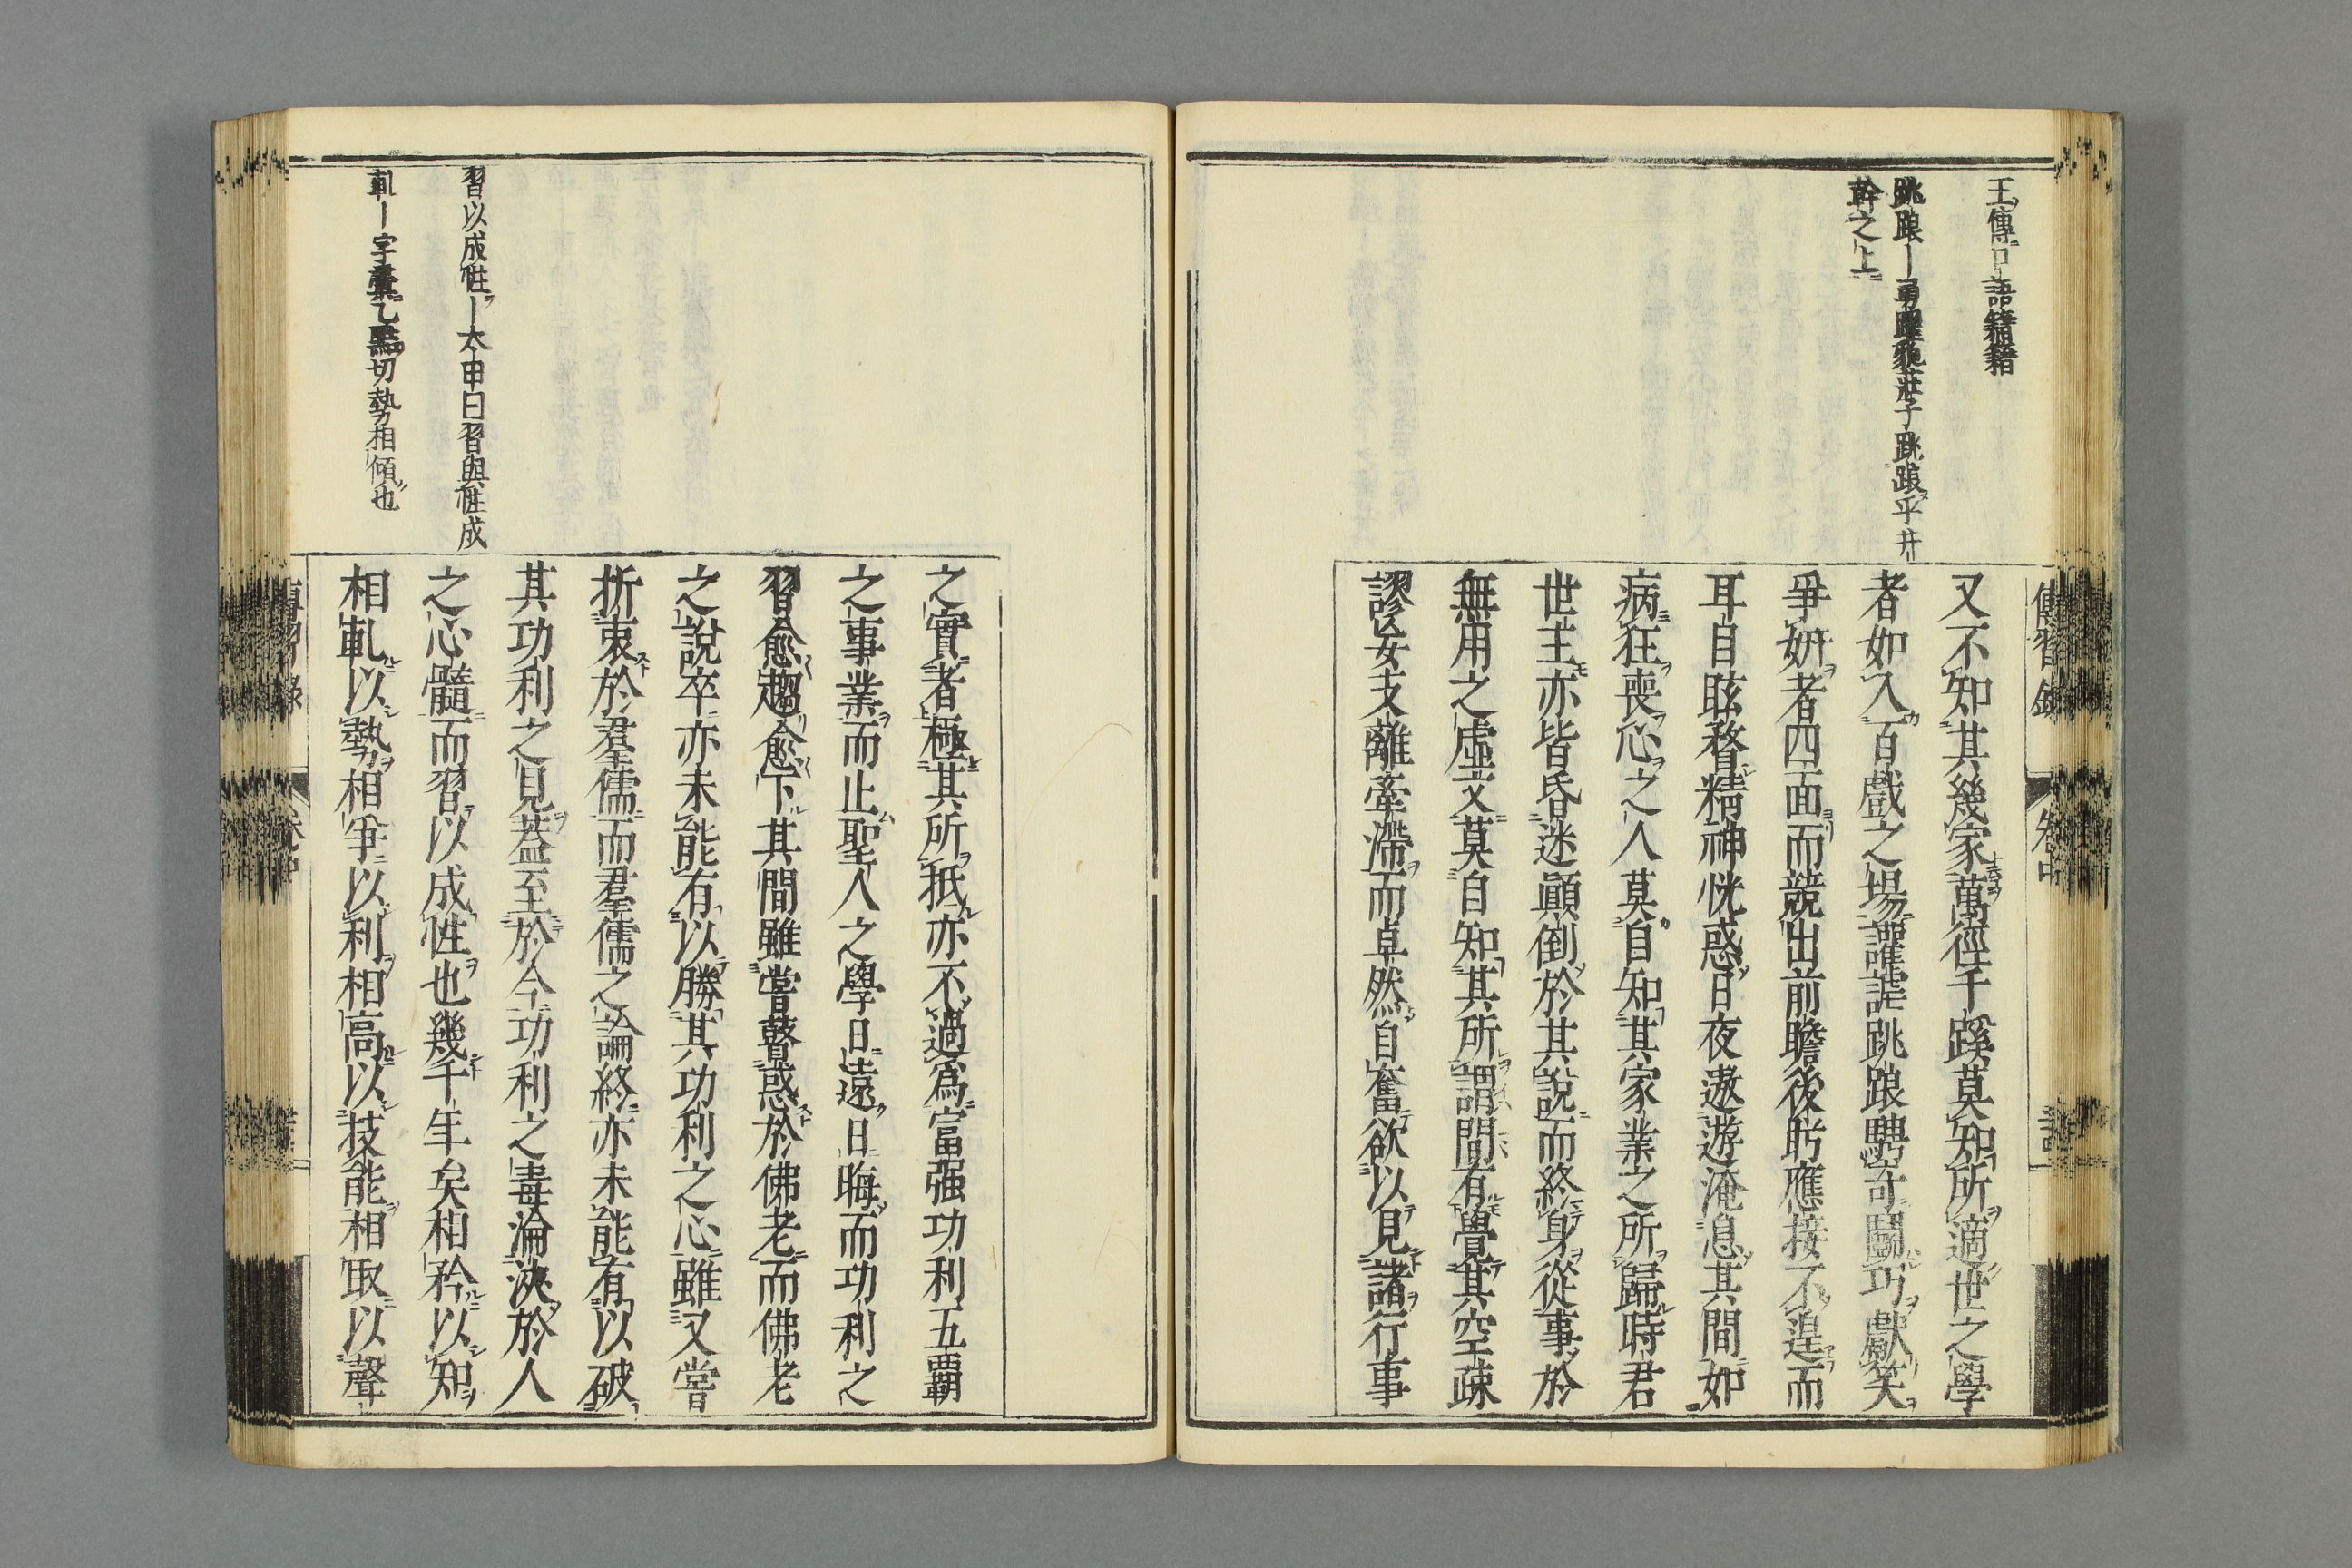 傳習錄 卷中
王傳口語籍籍
跳踉ー勇躍貌莊子跳踉乎井
幹之上
又不知其幾家萬徑千蹊莫知所適世之學
者如入百戲之場讙謔跳踉騁奇鬪巧獻笑
爭姸者四面而競出前瞻後盻應接不遑而
耳目眩瞀精神恍惑日夜遨遊淹息其間如
病狂喪心之人莫自知其家業之所歸時君
世主亦皆昏迷顚倒於其說而終身從事於
無用之虛文莫自知其所謂間有覺其空疎
謬妄支離牽滯而卓然自奮欲以見諸行事
習以成性ー太甲曰習與性成
軋ー字彙乙黠切勢相傾也
之實者極其所抵亦不過爲富强功利五覇
之事業而止聖人之學日遠日晦而功利之
習愈趨愈下其間雖嘗瞽惑於佛老而佛老
之說卒亦未能有以勝其功利之心雖又嘗
折衷於羣儒而羣儒之論終亦未能有以破
其功利之見蓋至於今功利之毒淪浹於人
之心髓而習以成性也幾千年矣相矜以知
相軋以勢相爭以利相高以技能相取以聲
傳習錄 卷中